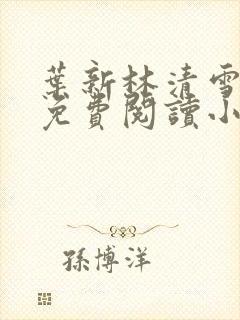 葉新林清雪
免費閱讀小
孫博洋